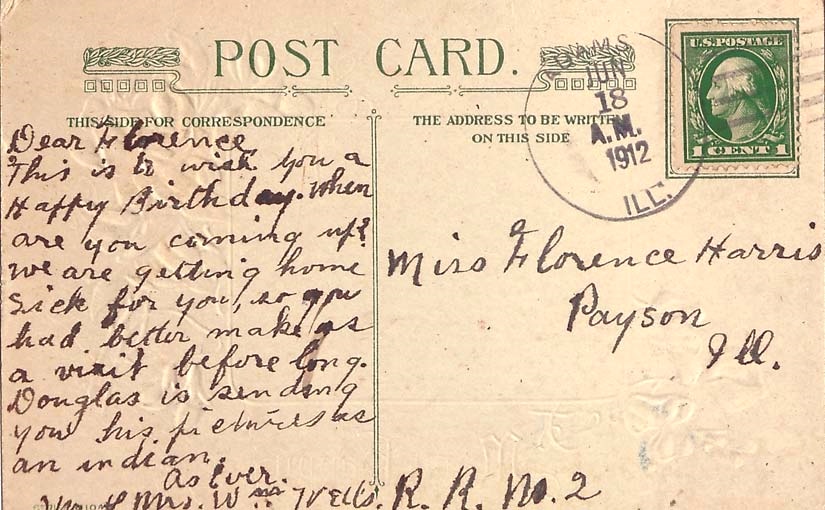 POST CARD.
THIS SIDE FOR CORRESPONDENCE
THE ADDRESS TO BE WRITTEN
ON THIS SIDE
ADAMS
JUN
18
A.M.
1912
ILL.
U.S. POSTAGE
1 CENT 1
Dear Florence,
This is to wish you a
Happy Birthday. When
are you coming up?
We are getting home
sick for you, so you
had better make us
a visit before long.
Douglas is sending
you his pictures as
an indian.
As Ever.
Mr. & Mrs. Wm Wells.
Miss Florence Harris
Payson
Ill.
R. R. No. 2